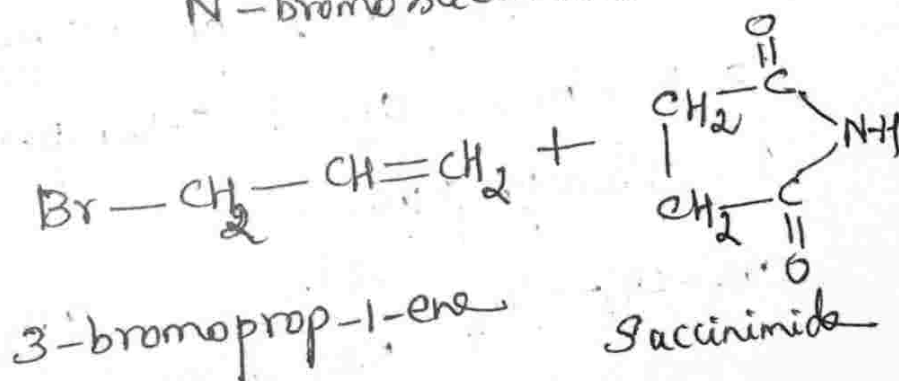 N-bromo
Br-CH2-CH=CH2 + CH2-C=O CH2-C=O N-H
3-bromoprop-1-ene Succinimide